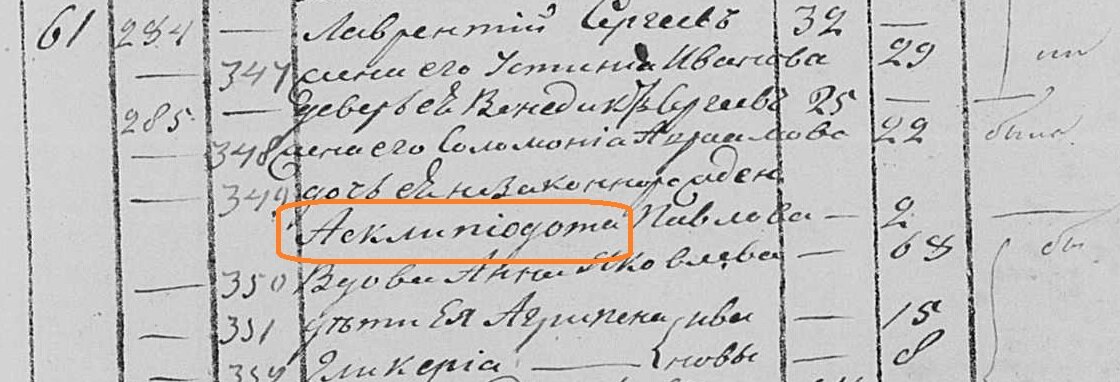 61 284 — Лаврентій Сергеевъ 32 —
— 347 жена его Устинія Иванова 29
285 — деверь ей Венедиктъ Сергеевъ 25 —
— 348 жена его Соломонія Абрамова 22 была
— 349 дочь ея незаконнорожден
Асклипіодота Павлова — 2
— 350 Вдова Анна Яковлева — 68 бы
— 351 дѣти Ея Агрипена Ива — 15
— 352 Гликерія — новы — 8